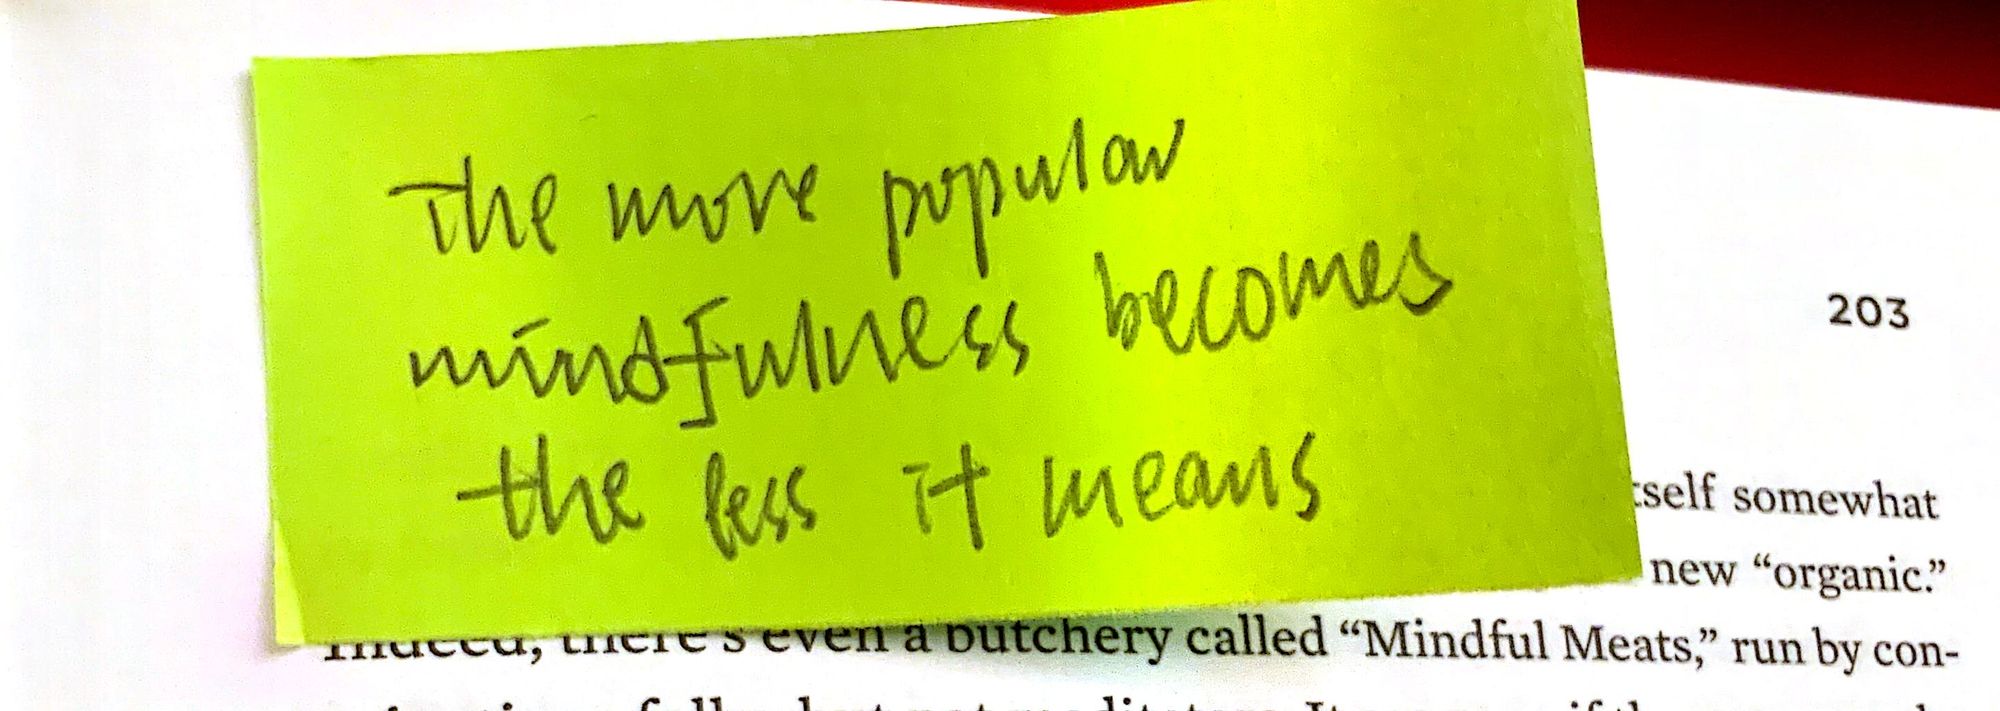 The more popular
mindfulness becomes
the less it means
203
self somewhat
new “organic.”
Indeed, there’s even a butchery called “Mindful Meats,” run by con-